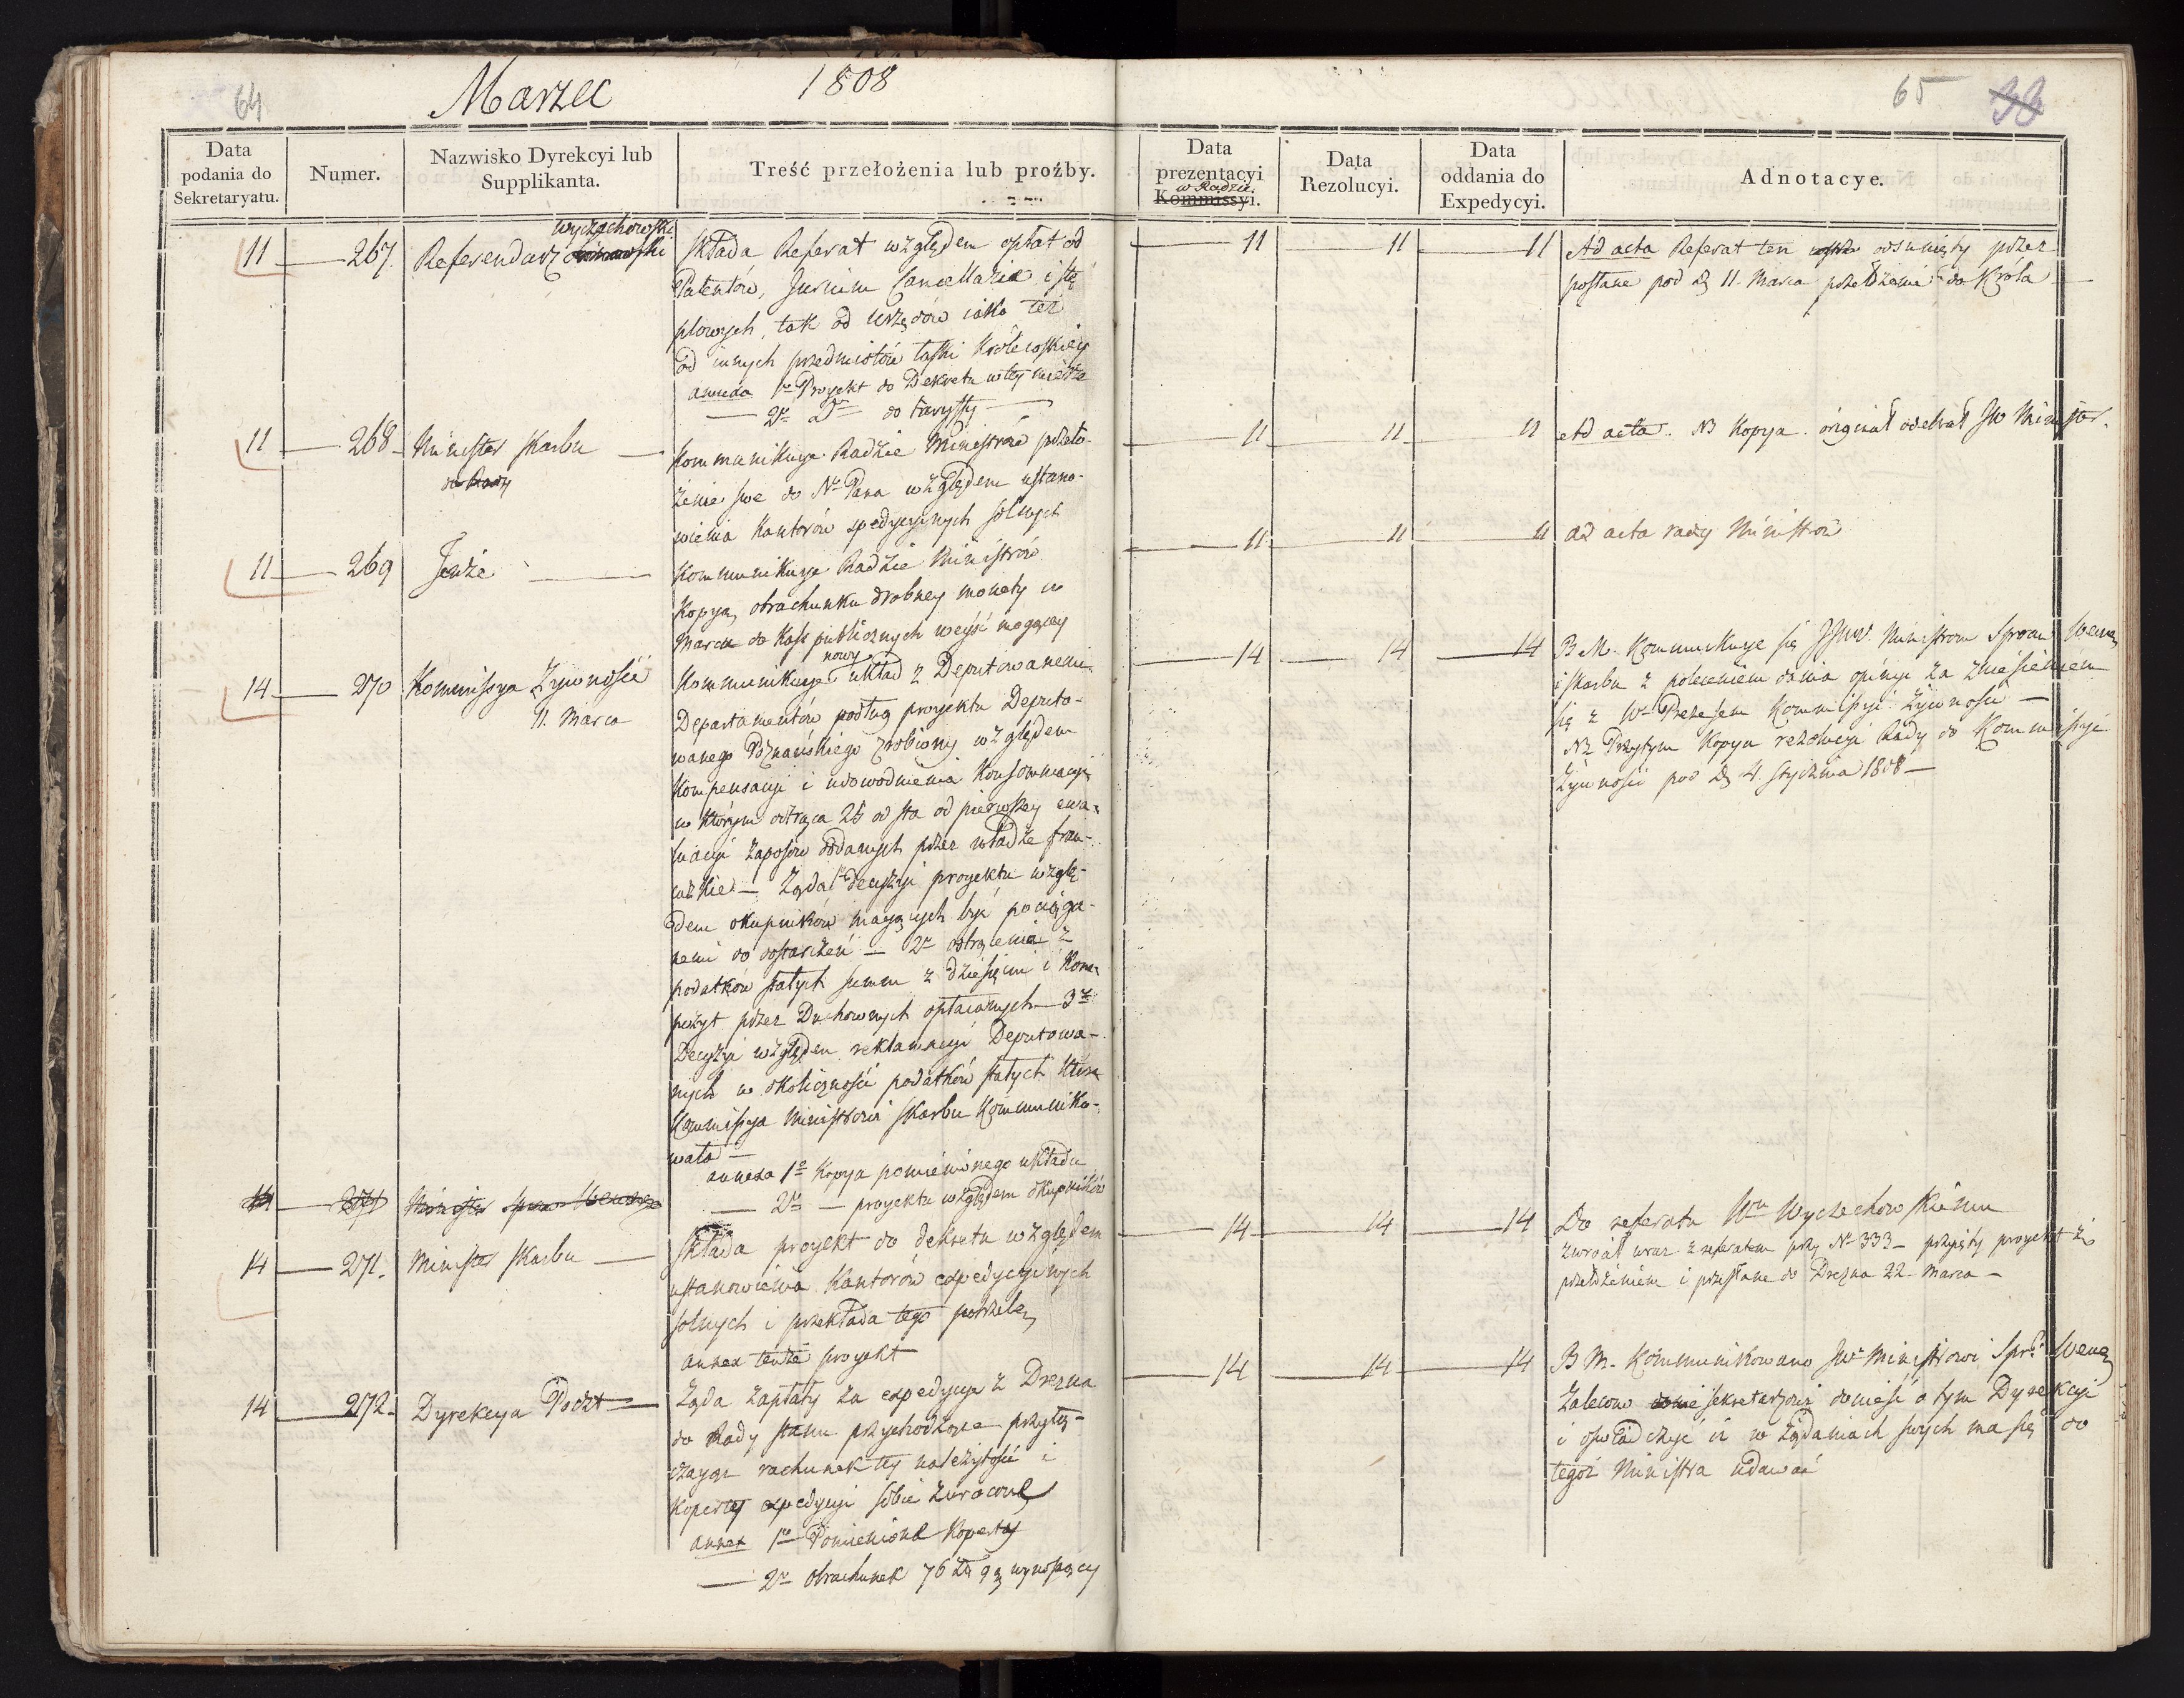 64
Marzec 1808
65 33
Data podania do Sekretaryatu.
Numer.
Nazwisko Dyrekcyi lub Supplikanta.
Treść przełożenia lub proźby.
Data prezentacyi w Radzie Kommissyi.
Data Rezolucyi.
Data oddania do Expedycyi.
Adnotacye.
11 267. Referendarz Wyczechowski
Składa Referat względem opłat od
Patentów, Jurium Cancellariae i stę
plowych, tak od Urzędów iako też
od innych przedmiotów łaski Królewskiey
annexa 1o Proyekt do Dekretu w tey mierze
2o do taryffy
11 11 11 Ad acta Referat ten usunięty przez
posłane pod d 11. Marca przełożenie do Króla
11 268 Minister Skarbu
do Rady
Kommunikuje Radzie Ministrów przeło-
żenie swe do Nº Pana względem ustano-
wienia Kantorów expedycyjnych solnych
11 11 11 Ad acta. NB Kopya. originał odebrał JW Minister.
11 269 Tenże
Kommunikuje Radzie Ministrów
Kopyą obrachunku drobney monety w
Marcu do Kass publicznych weyść mogącey
11 11 11 ad acta rady Ministrów
14 270 Kommissya Żywności
11. Marca
Kommunikuje nowy układ z Deputowanemi
Departamentów podług proyektu Deputo-
wanego Poznańskiego zrobiony względem
Kompensacyi i udowodnienia Konsommacyi,
w którym odtrąca 25 od sta od pierwszey ewa-
luacyi zapasów oddanych przez władze fran-
cuzkie. — Żąda 1o decyzyi proyektu wzglę-
dem okupników mających być pociąga-
nemi do dostarczeń — 2o odtrącenia z
podatków stałych summ z dziesięcin i Kom-
petyt przez Duchownych opłacanych — 3o
Decyzyi względem reklamacyi Deputowa-
nych w okoliczności podatków stałych którą
Kommissya Ministrowi Skarbu Kommuniko-
wała —
annexa 1o Kopya pomienionego układu
2o — proyektu względem okupników
14 14 14 BM. Kommunikuje się JJWW. Ministrom Spraw Wewn.
i Skarbu z poleceniem dania opinii za zniesieniem
się z Wm Prezesem Kommissyi Żywności —
NB Przytym Kopya rezolucyi Rady do Kommissyi
Żywności pod d 4. Stycznia 1808 —
14 271 Minister Spraw Wewnę
14 271. Minister Skarbu
Składa proyekt do dekretu względem
ustanowienia Kantorów expedycyjnych
solnych i przekłada tego potrzebę
annex tenże proyekt
14 14 14 Do referatu Wmu Wyczechowskiemu
zwrócił wraz z referatem przy Nº 333 — przyięty proyekt i z
przełożeniem i przesłane do Drezna 22. Marca —
14 272. Dyrekcya Poczt
Żąda zapłaty za expedycye z Drezna
do Rady Stanu przychodzące przyłą-
czając rachunek tey należytości i
koperty expedycyi sobie zwrócone
annex 1o Pomienione Koperty
2o obrachunek 76 zł 9 g wynoszący
14 14 14 BM. Kommunikowano JW Ministrowi Spr. Wewn.
Zalecono Sekretarzowi donieść o tym Dyrekcyi
i oświadczyć iż w żądaniach swych ma się do
tegoż Ministra udawać